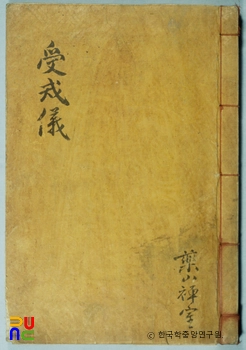 受戒儀
藥山禪室
ⓒ 한국학중앙연구원